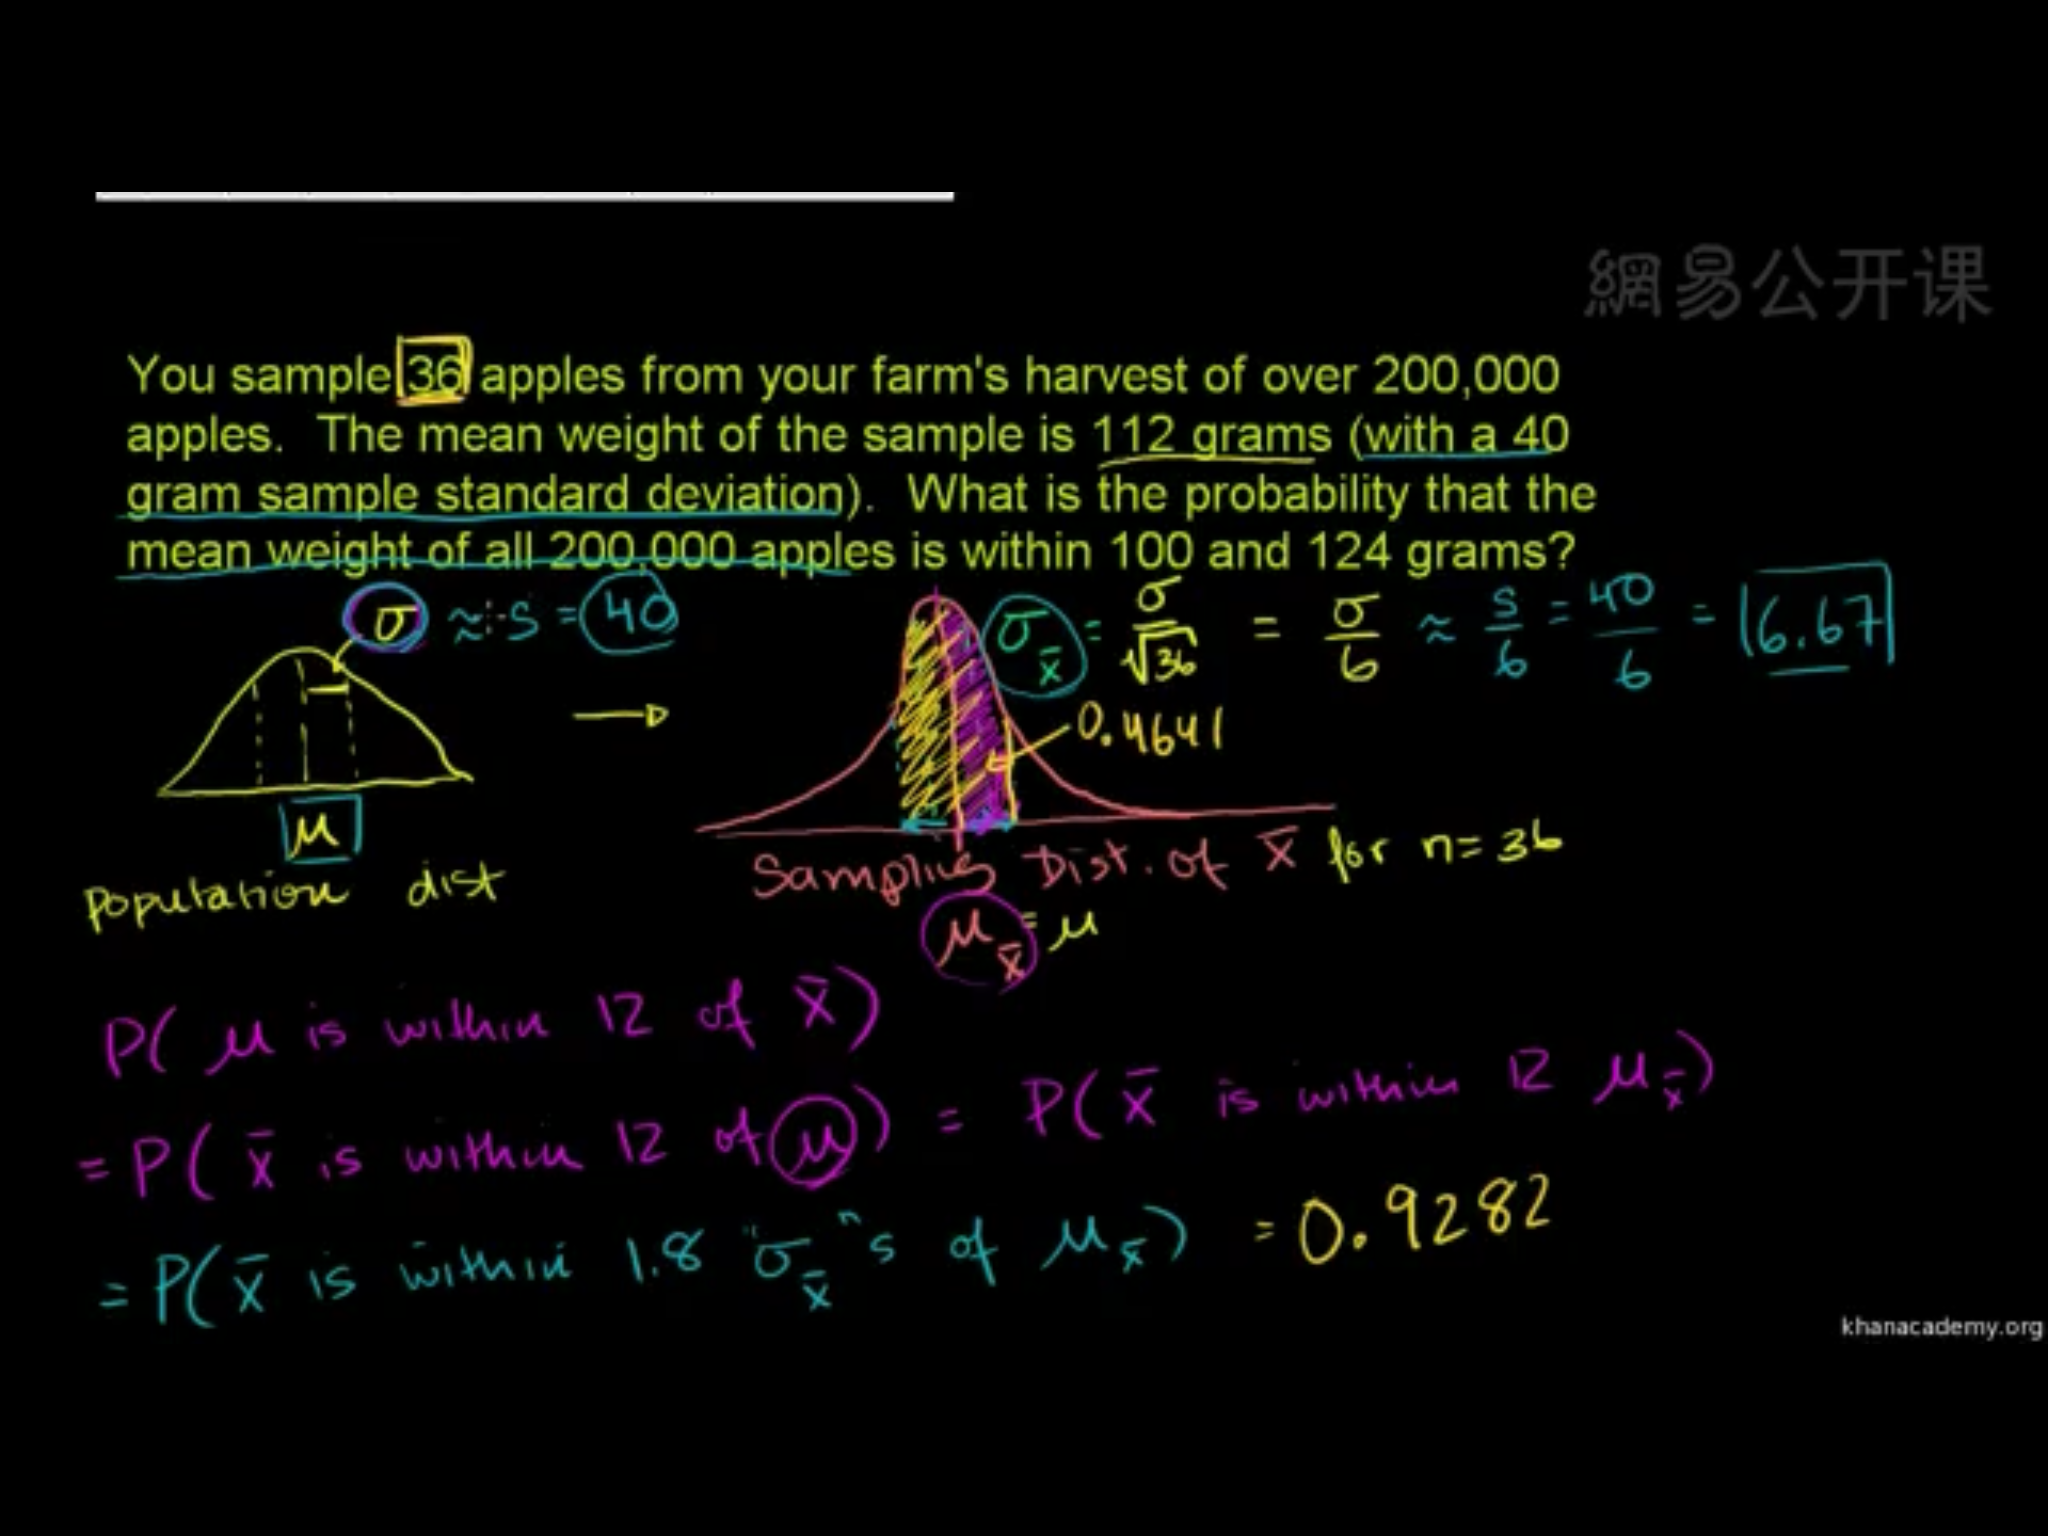 網易公开课
You sample 36 apples from your farm's harvest of over 200,000
apples. The mean weight of the sample is 112 grams (with a 40
gram sample standard deviation). What is the probability that the
mean weight of all 200,000 apples is within 100 and 124 grams?
σ ≈ s = 40
σx̄ = σ/√36 = σ/6 ≈ s/6 = 40/6 = 6.67
0.4641
μ
Population dist
Sampling Dist. of x̄ for n = 36
μx̄ = μ
P( μ is within 12 of x̄)
= P( x̄ is within 12 of μ) = P( x̄ is within 12 μx̄)
= P( x̄ is within 1.8 "σx̄"s of μx̄) = 0.9282
khanacademy.org